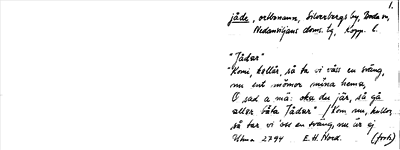 1.
jåde, ortsnamn, Silverbergs by, Boda sn,
Nedansiljans doms. bg, Kopp. l.
"Jådar"
"Komi, kellär, så ta vi våss en sväng,
nu ent mömor mina hema,
O sad a må: oka du jär, så gå
aller båta Jådar" / Kom nu, kullor,
så tar vi oss en sväng, nu är ej
Ulma 2794 E.H. Nord. (forts)